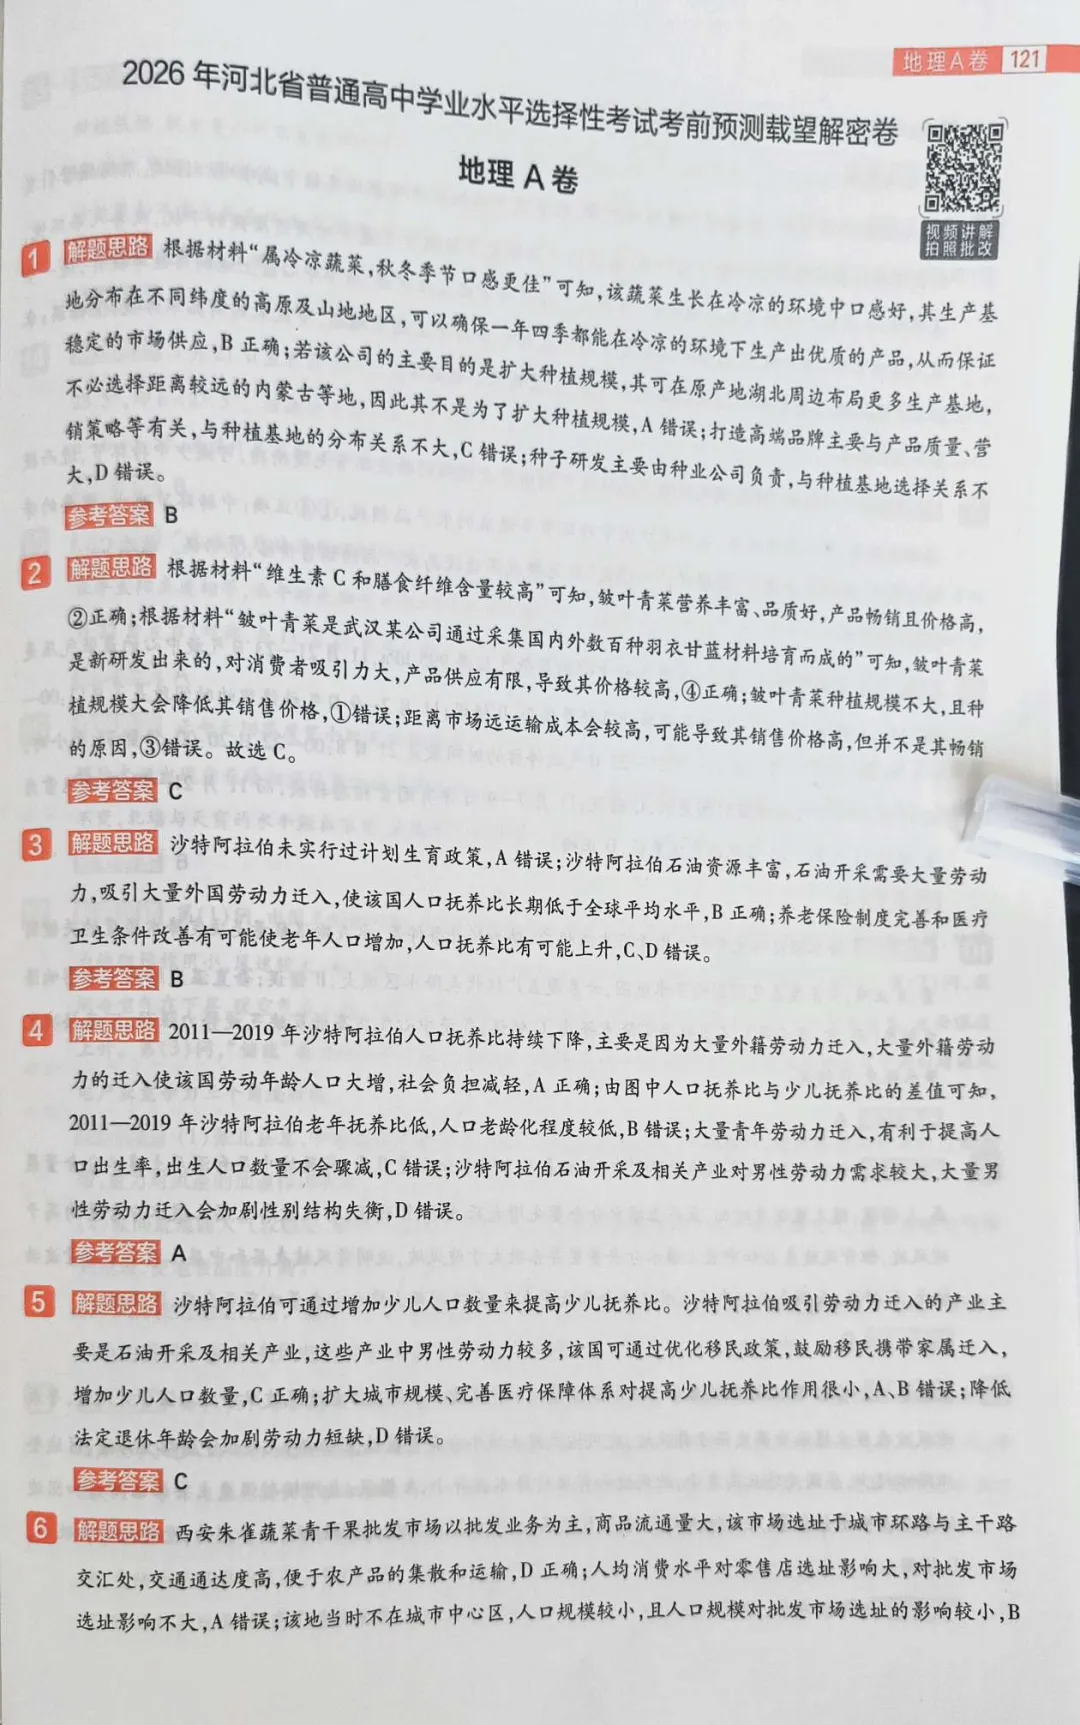 地理A卷 121
2026年河北省普通高中学业水平选择性考试考前预测载望解密卷
地理 A 卷
视频讲解
拍照批改
1 解题思路 根据材料“属冷凉蔬菜,秋冬季节口感更佳”可知,该蔬菜生长在冷凉的环境中口感好,其生产基
地分布在不同纬度的高原及山地地区,可以确保一年四季都能在冷凉的环境下生产出优质的产品,从而保证
稳定的市场供应,B 正确;若该公司的主要目的是扩大种植规模,其可在原产地湖北周边布局更多生产基地,
不必选择距离较远的内蒙古等地,因此其不是为了扩大种植规模,A 错误;打造高端品牌主要与产品质量、营
销策略等有关,与种植基地的分布关系不大,C 错误;种子研发主要由种业公司负责,与种植基地选择关系不
大,D 错误。
参考答案 B
2 解题思路 根据材料“维生素 C 和膳食纤维含量较高”可知,皱叶青菜营养丰富、品质好,产品畅销且价格高,
②正确;根据材料“皱叶青菜是武汉某公司通过采集国内外数百种羽衣甘蓝材料培育而成的”可知,皱叶青菜
是新研发出来的,对消费者吸引力大,产品供应有限,导致其价格较高,④正确;皱叶青菜种植规模不大,且种
植规模大会降低其销售价格,①错误;距离市场远运输成本会较高,可能导致其销售价格高,但并不是其畅销
的原因,③错误。故选 C。
参考答案 C
3 解题思路 沙特阿拉伯未实行过计划生育政策,A 错误;沙特阿拉伯石油资源丰富,石油开采需要大量劳动
力,吸引大量外国劳动力迁入,使该国人口抚养比长期低于全球平均水平,B 正确;养老保险制度完善和医疗
卫生条件改善有可能使老年人口增加,人口抚养比有可能上升,C、D 错误。
参考答案 B
4 解题思路 2011—2019 年沙特阿拉伯人口抚养比持续下降,主要是因为大量外籍劳动力迁入,大量外籍劳动
力的迁入使该国劳动年龄人口大增,社会负担减轻,A 正确;由图中人口抚养比与少儿抚养比的差值可知,
2011—2019 年沙特阿拉伯老年抚养比低,人口老龄化程度较低,B 错误;大量青年劳动力迁入,有利于提高人
口出生率,出生人口数量不会骤减,C 错误;沙特阿拉伯石油开采及相关产业对男性劳动力需求较大,大量男
性劳动力迁入会加剧性别结构失衡,D 错误。
参考答案 A
5 解题思路 沙特阿拉伯可通过增加少儿人口数量来提高少儿抚养比。沙特阿拉伯吸引劳动力迁入的产业主
要是石油开采及相关产业,这些产业中男性劳动力较多,该国可通过优化移民政策,鼓励移民携带家属迁入,
增加少儿人口数量,C 正确;扩大城市规模、完善医疗保障体系对提高少儿抚养比作用很小,A、B 错误;降低
法定退休年龄会加剧劳动力短缺,D 错误。
参考答案 C
6 解题思路 西安朱雀蔬菜青干果批发市场以批发业务为主,商品流通量大,该市场选址于城市环路与主干路
交汇处,交通通达度高,便于农产品的集散和运输,D 正确;人均消费水平对零售店选址影响大,对批发市场
选址影响不大,A 错误;该地当时不在城市中心区,人口规模较小,且人口规模对批发市场选址的影响较小,B